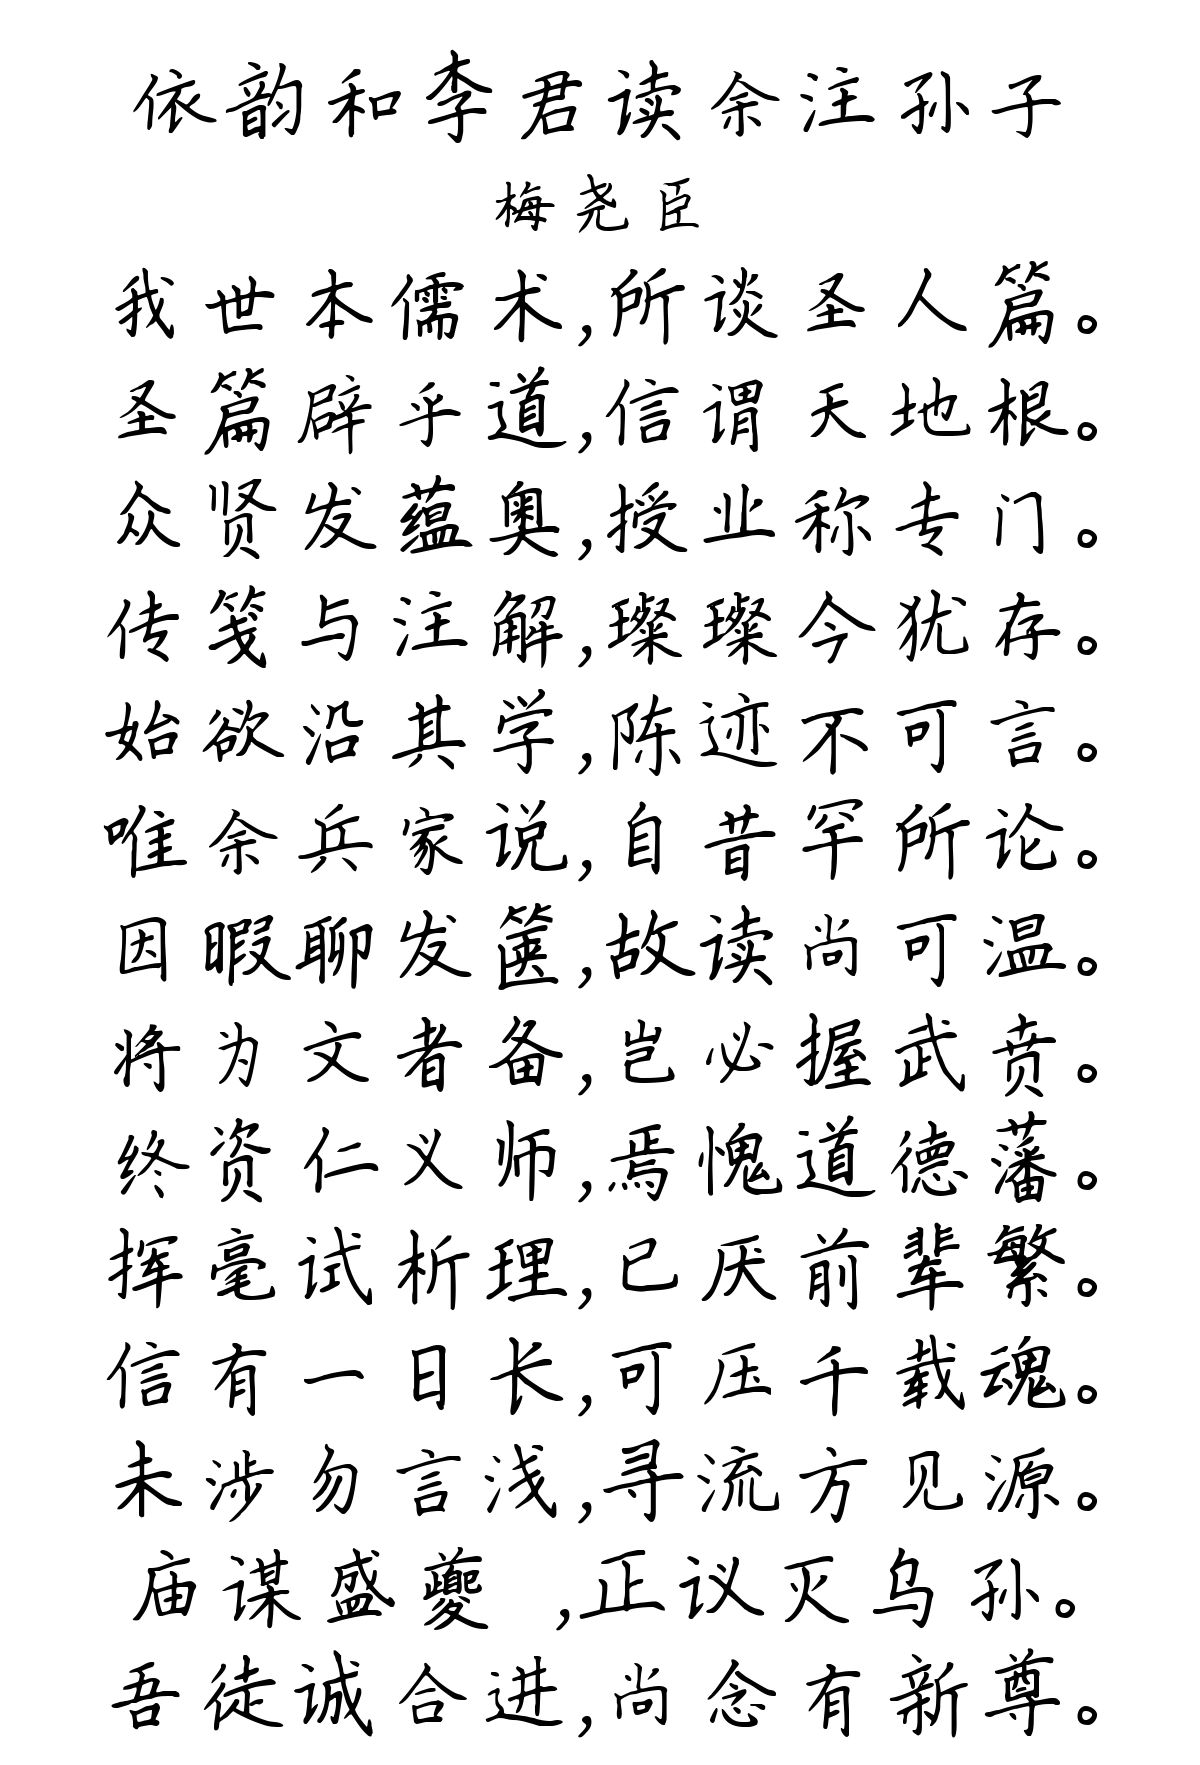 依韵和李君读余注孙子
梅尧臣
我世本儒术,所谈圣人篇。
圣篇辟乎道,信谓天地根。
众贤发蕴奥,授业称专门。
传笺与注解,璨璨今犹存。
始欲沿其学,陈迹不可言。
唯余兵家说,自昔罕所论。
因暇聊发箧,故读尚可温。
将为文者备,岂必握武贲。
终资仁义师,焉愧道德藩。
挥毫试析理,已厌前辈繁。
信有一日长,可压千载魂。
未涉勿言浅,寻流方见源。
庙谋盛夔 ,正议灭乌孙。
吾徒诚合进,尚念有新尊。